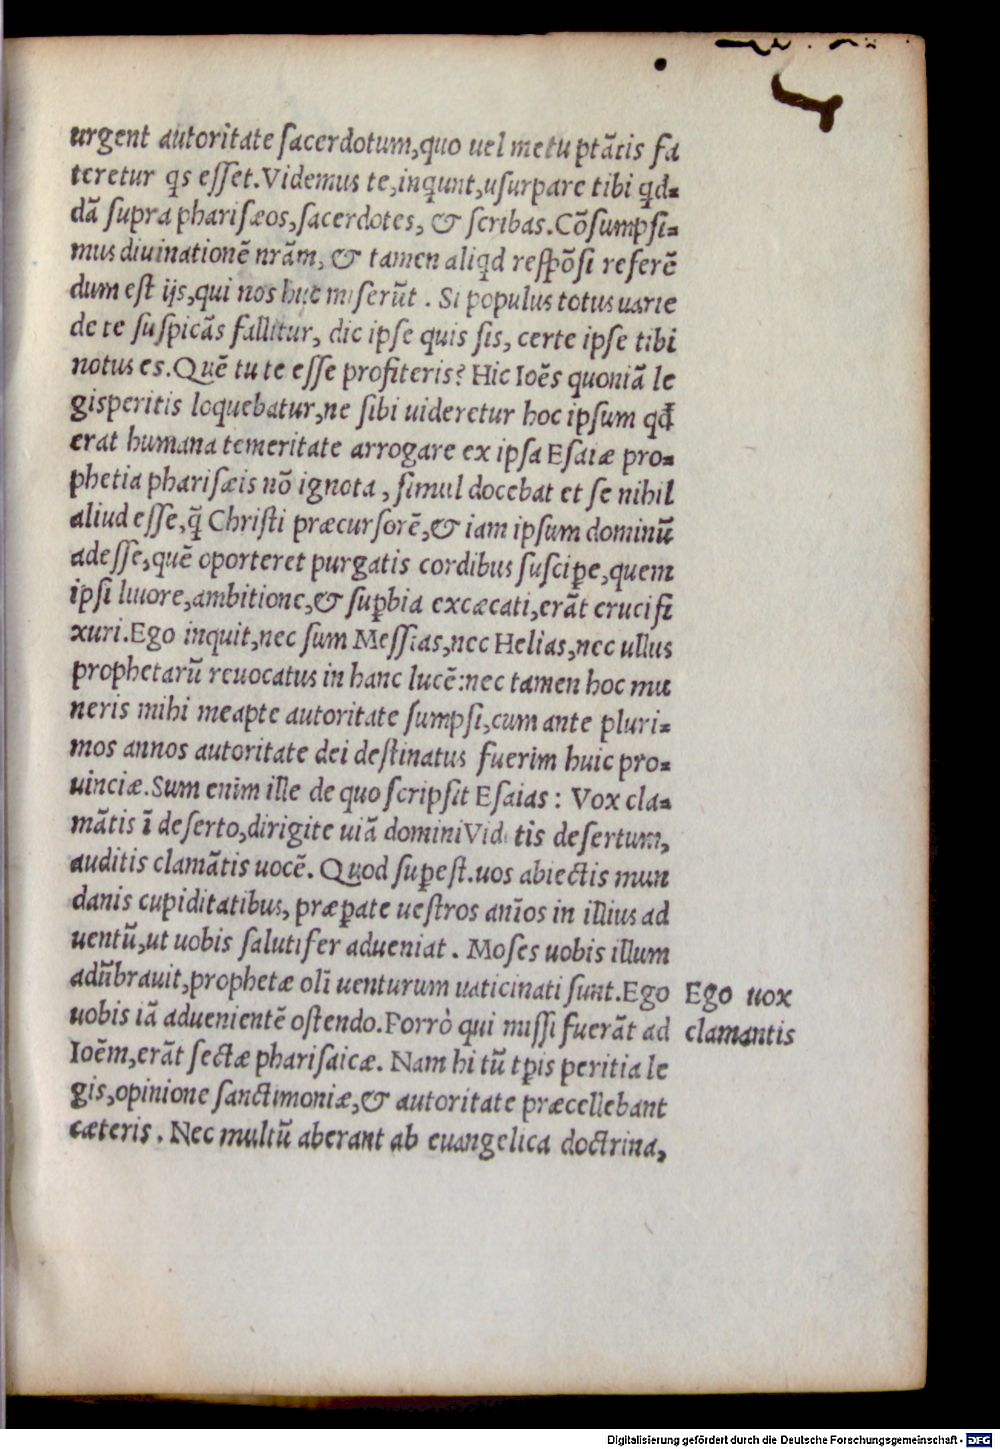 urgent autoritate ſacerdotum,quo uel metu ptãtis fa
teretur qs eſſet.Videmus te,inqunt,uſurpare tibi qd⸗
dã ſupra phariſæos,ſacerdotes, & ſcribas.Cõſumpſi⸗
mus diuinationẽ nrãm, & tamen aliqd reſpõſi referẽ
dum eſt ijs,qui nos huc miſerũt . Si populus totus uarie
de te ſuſpicãs fallitur, dic ipſe quis ſis, certe ipſe tibi
notus es.Quẽ tu te eſſe profiteris? Hic Ioẽs quoniã le
giſperitis loquebatur,ne ſibi uideretur hoc ipſum qđ
erat humana temeritate arrogare ex ipſa Eſaiæ pro⸗
phetia phariſæis nõ ignota , ſimul docebat et ſe nihil
aliud eſſe,q̃ Chriſti præcurſorẽ,& iam ipſum dominũ
adeſſe,quẽ oporteret purgatis cordibus ſuſciꝑe,quem
ipſi liuore,ambitione,& ſuꝑbia excæcati,erãt crucifi
xuri.Ego inquit,nec ſum Meſſias,nec Helias,nec ullus
prophetarũ reuocatus in hanc lucẽ:nec tamen hoc mu
neris mihi meapte autoritate ſumpſi,cum ante pluri⸗
mos annos autoritate dei deſtinatus fuerim huic pro⸗
uinciæ.Sum enim ille de quo ſcripſit Eſaias : Vox cla⸗
mãtis ĩ deſerto,dirigite uiã domini Vid tis deſertum,
auditis clamãtis uocẽ. Quod ſuꝑeſt.uos abiectis mun
danis cupiditatibus, præꝑate ueſtros anĩos in illius ad
uentũ,ut uobis ſalutifer adueniat . Moſes uobis illum
adũbrauit,prophetæ olĩ uenturum uaticinati ſunt.Ego
uobis iã aduenientẽ oſtendo.Porrò qui miſſi fuerãt ad
Ioẽm,erãt ſectæ phariſaicæ. Nam hi tũ tꝑis peritia le
gis,opinione ſanctimoniæ,& autoritate præcellebant
cæteris . Nec multũ aberant ab euangelica doctrina,
Ego uox
clamantis
Digitalisierung gefördert durch die Deutsche Forschungsgemeinschaft - DFG